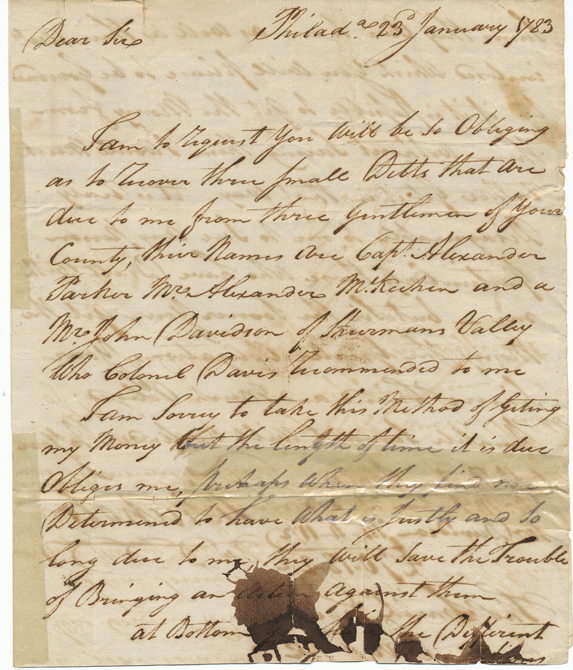 Dear Sir Philada 23d January 1783
I am to request You Will be so Obliging
as to recover three small Debts that are
due to me from three Gentlemen of Your
County, thier Names are Capt. Alexander
Parker Mr. Alexander McKeehen and a
Mr John Davidson of Shermans Valley
Who Colonel Davis recommended to me
I am Sorrey to take this Method of Geting
my Money but the length of time it is due
Obliges me, perhaps When they find me
Determined to have What is Justly and so
long due to me they Will save the Trouble
of Bringing an Action against them
at Bottom the Different